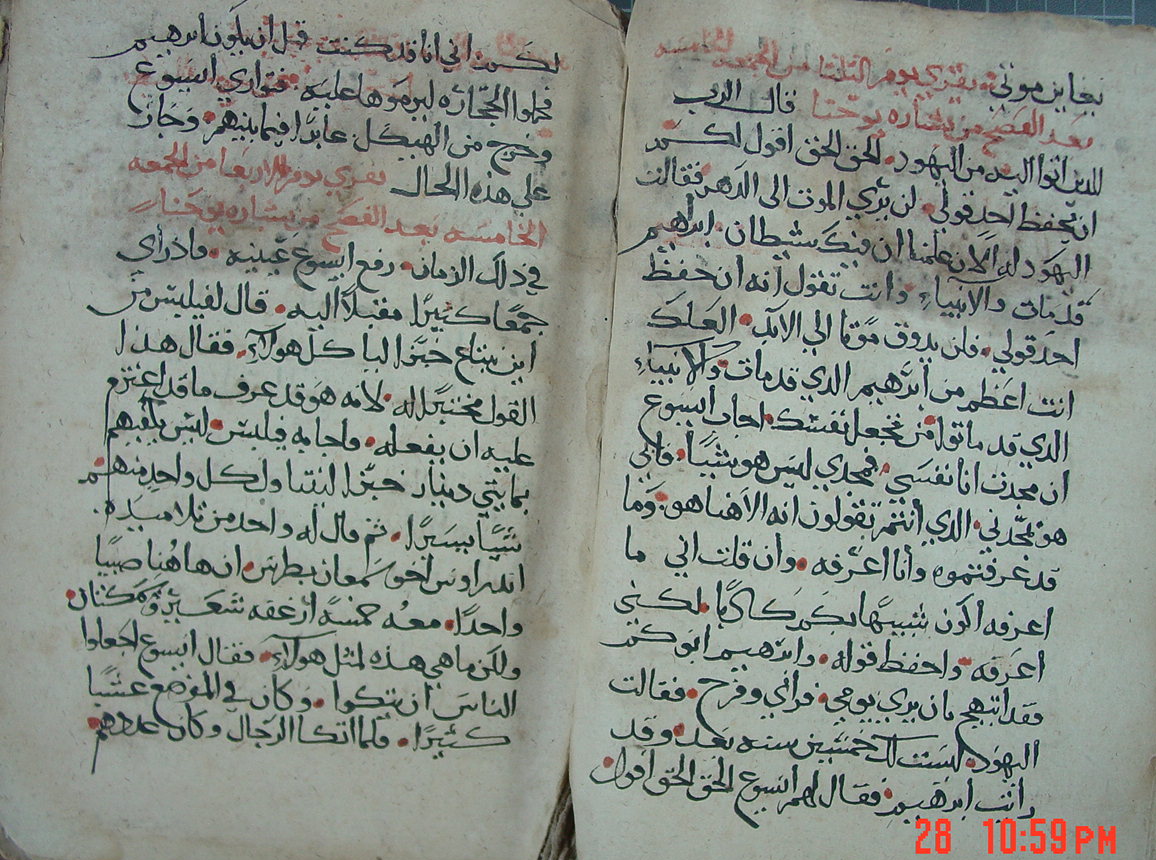 يعاين موتي يقري يوم الثلثا من الجمعه الخامسه
بعد الفصح من بشاره يوحنا قال الرب
للذين اتوا اليه من اليهود الحق الحق اقول لكم
ان يحفظ احد قولي لن يري الموت الى الدهر فقالت
اليهود له الان علمنا ان فيك شيطان ابرهيم
قد مات والانبياء وانت تقول انه ان حفظ
احد قولي فلن يذوق موتا الي الابد العلك
انت اعظم من ابرهيم الذي قد مات والانبياء
الذي قد ماتوا من تجعل نفسك اجاب ايسوع
ان مجدت انا نفسي فمجدي ليس هو شيا فابي
هو يمجدني الذي أنتم تقولون انه الاهنا هو وما
قد عرفتموه وانا اعرفه وان قلت اني ما
اعرفه اكون شبيها بكم كاذبا لكني
اعرفه واحفظ قوله وابرهيم ابوكم
فقد ابتهج بان يري يومي فراي وفرح فقالت
اليهود ليست لك خمسين سنه بعد وقد
رايت ابرهيم فقال لهم ايسوع الحق الحق اقول
لكم اني انا قد كنت قبل أن يكون ابرهيم
فحملوا الحجاره ليرموها عليه فتواري ايسوع
وخرج من الهيكل عابرا فيما بينهم وجاز
علي هذه الحال يقري يوم الاربعا من الجمعه
الخامسه بعد الفصح من بشاره يوحنا
في ذلك الزمان رفع ايسوع عينيه فاذ راي
جمعا كثيرا مقبلا اليه قال لفيلبس من
اين نبتاع خبزا لياكل هولاء فقال هذا
القول مختبرا له لانه هو قد عرف ما قد اعتزم
عليه ان يفعله فاجابه فيلبس ليس يكفيهم
بمايتي دينار خبزا ليتناول كل واحد منهم
شيا يسيرا ثم قال له واحد من تلاميذه
اندراوس اخو سمعان بطرس ان هاهنا صبيا
واحدا معه خمسة ارغفه شعير وسمكتان
ولكن ما هي هذه لمثل هولاء فقال ايسوع اجعلوا
الناس ان يتكوا وكان في الموضع عشبا
كثيرا فلما اتكا الرجال وكان عددهم
28 10:59 PM